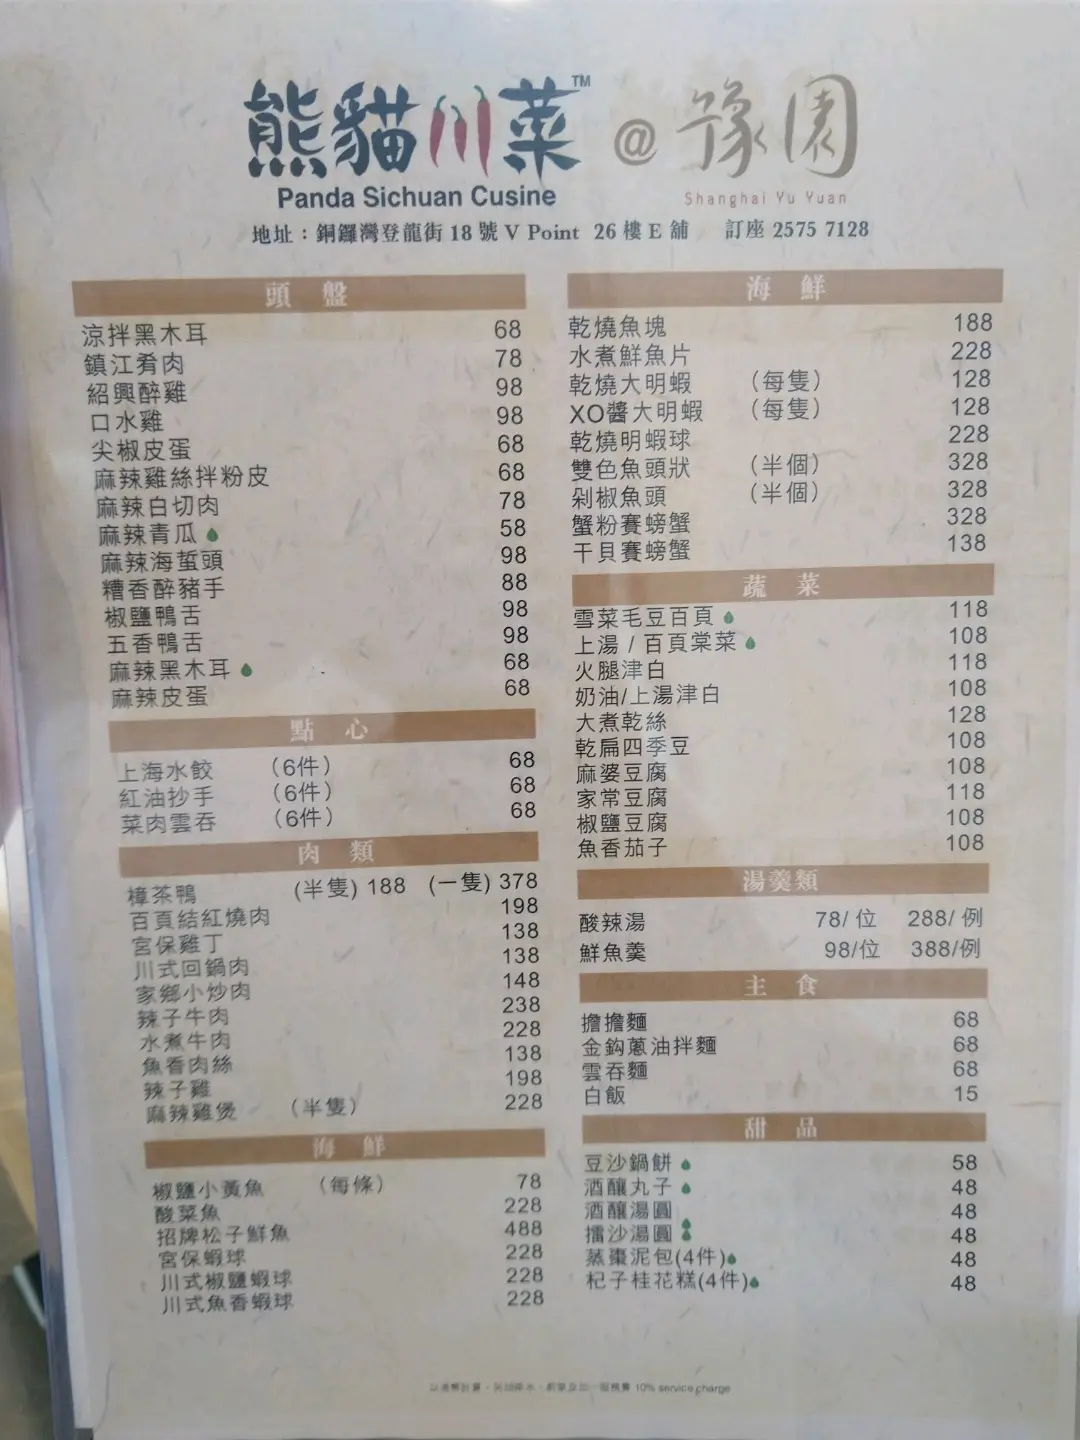 熊貓川菜™ @ 豫園
Panda Sichuan Cusine
Shanghai Yu Yuan
地址：銅鑼灣登龍街18號V Point 26樓E舖 訂座 2575 7128
頭 盤
涼拌黑木耳 68
鎮江肴肉 78
紹興醉雞 98
口水雞 98
尖椒皮蛋 68
麻辣雞絲拌粉皮 68
麻辣白切肉 78
麻辣青瓜 58
麻辣海蜇頭 98
糟香醉豬手 88
椒鹽鴨舌 98
五香鴨舌 98
麻辣黑木耳 68
麻辣皮蛋 68
點 心
上海水餃 （6件） 68
紅油抄手 （6件） 68
菜肉雲吞 （6件） 68
肉 類
樟茶鴨 (半隻) 188 (一隻) 378
百頁結紅燒肉 198
宮保雞丁 138
川式回鍋肉 138
家鄉小炒肉 148
辣子牛肉 238
水煮牛肉 228
魚香肉絲 138
辣子雞 198
麻辣雞煲 （半隻） 228
海 鮮
椒鹽小黃魚 （每條） 78
酸菜魚 228
招牌松子鮮魚 488
宮保蝦球 228
川式椒鹽蝦球 228
川式魚香蝦球 228
海 鮮
乾燒魚塊 188
水煮鮮魚片 228
乾燒大明蝦 （每隻） 128
XO醬大明蝦 （每隻） 128
乾燒明蝦球 228
雙色魚頭狀 （半個） 328
剁椒魚頭 （半個） 328
蟹粉賽螃蟹 328
干貝賽螃蟹 138
蔬 菜
雪菜毛豆百頁 118
上湯 / 百頁棠菜 108
火腿津白 118
奶油/上湯津白 108
大煮乾絲 128
乾扁四季豆 108
麻婆豆腐 108
家常豆腐 118
椒鹽豆腐 108
魚香茄子 108
湯羹類
酸辣湯 78/ 位 288/ 例
鮮魚羹 98/位 388/例
主 食
擔擔麵 68
金鈎蔥油拌麵 68
雲吞麵 68
白飯 15
甜 品
豆沙鍋餅 58
酒釀丸子 48
酒釀湯圓 48
擂沙湯圓 48
蒸棗泥包(4件) 48
杞子桂花糕(4件) 48
10% service charge